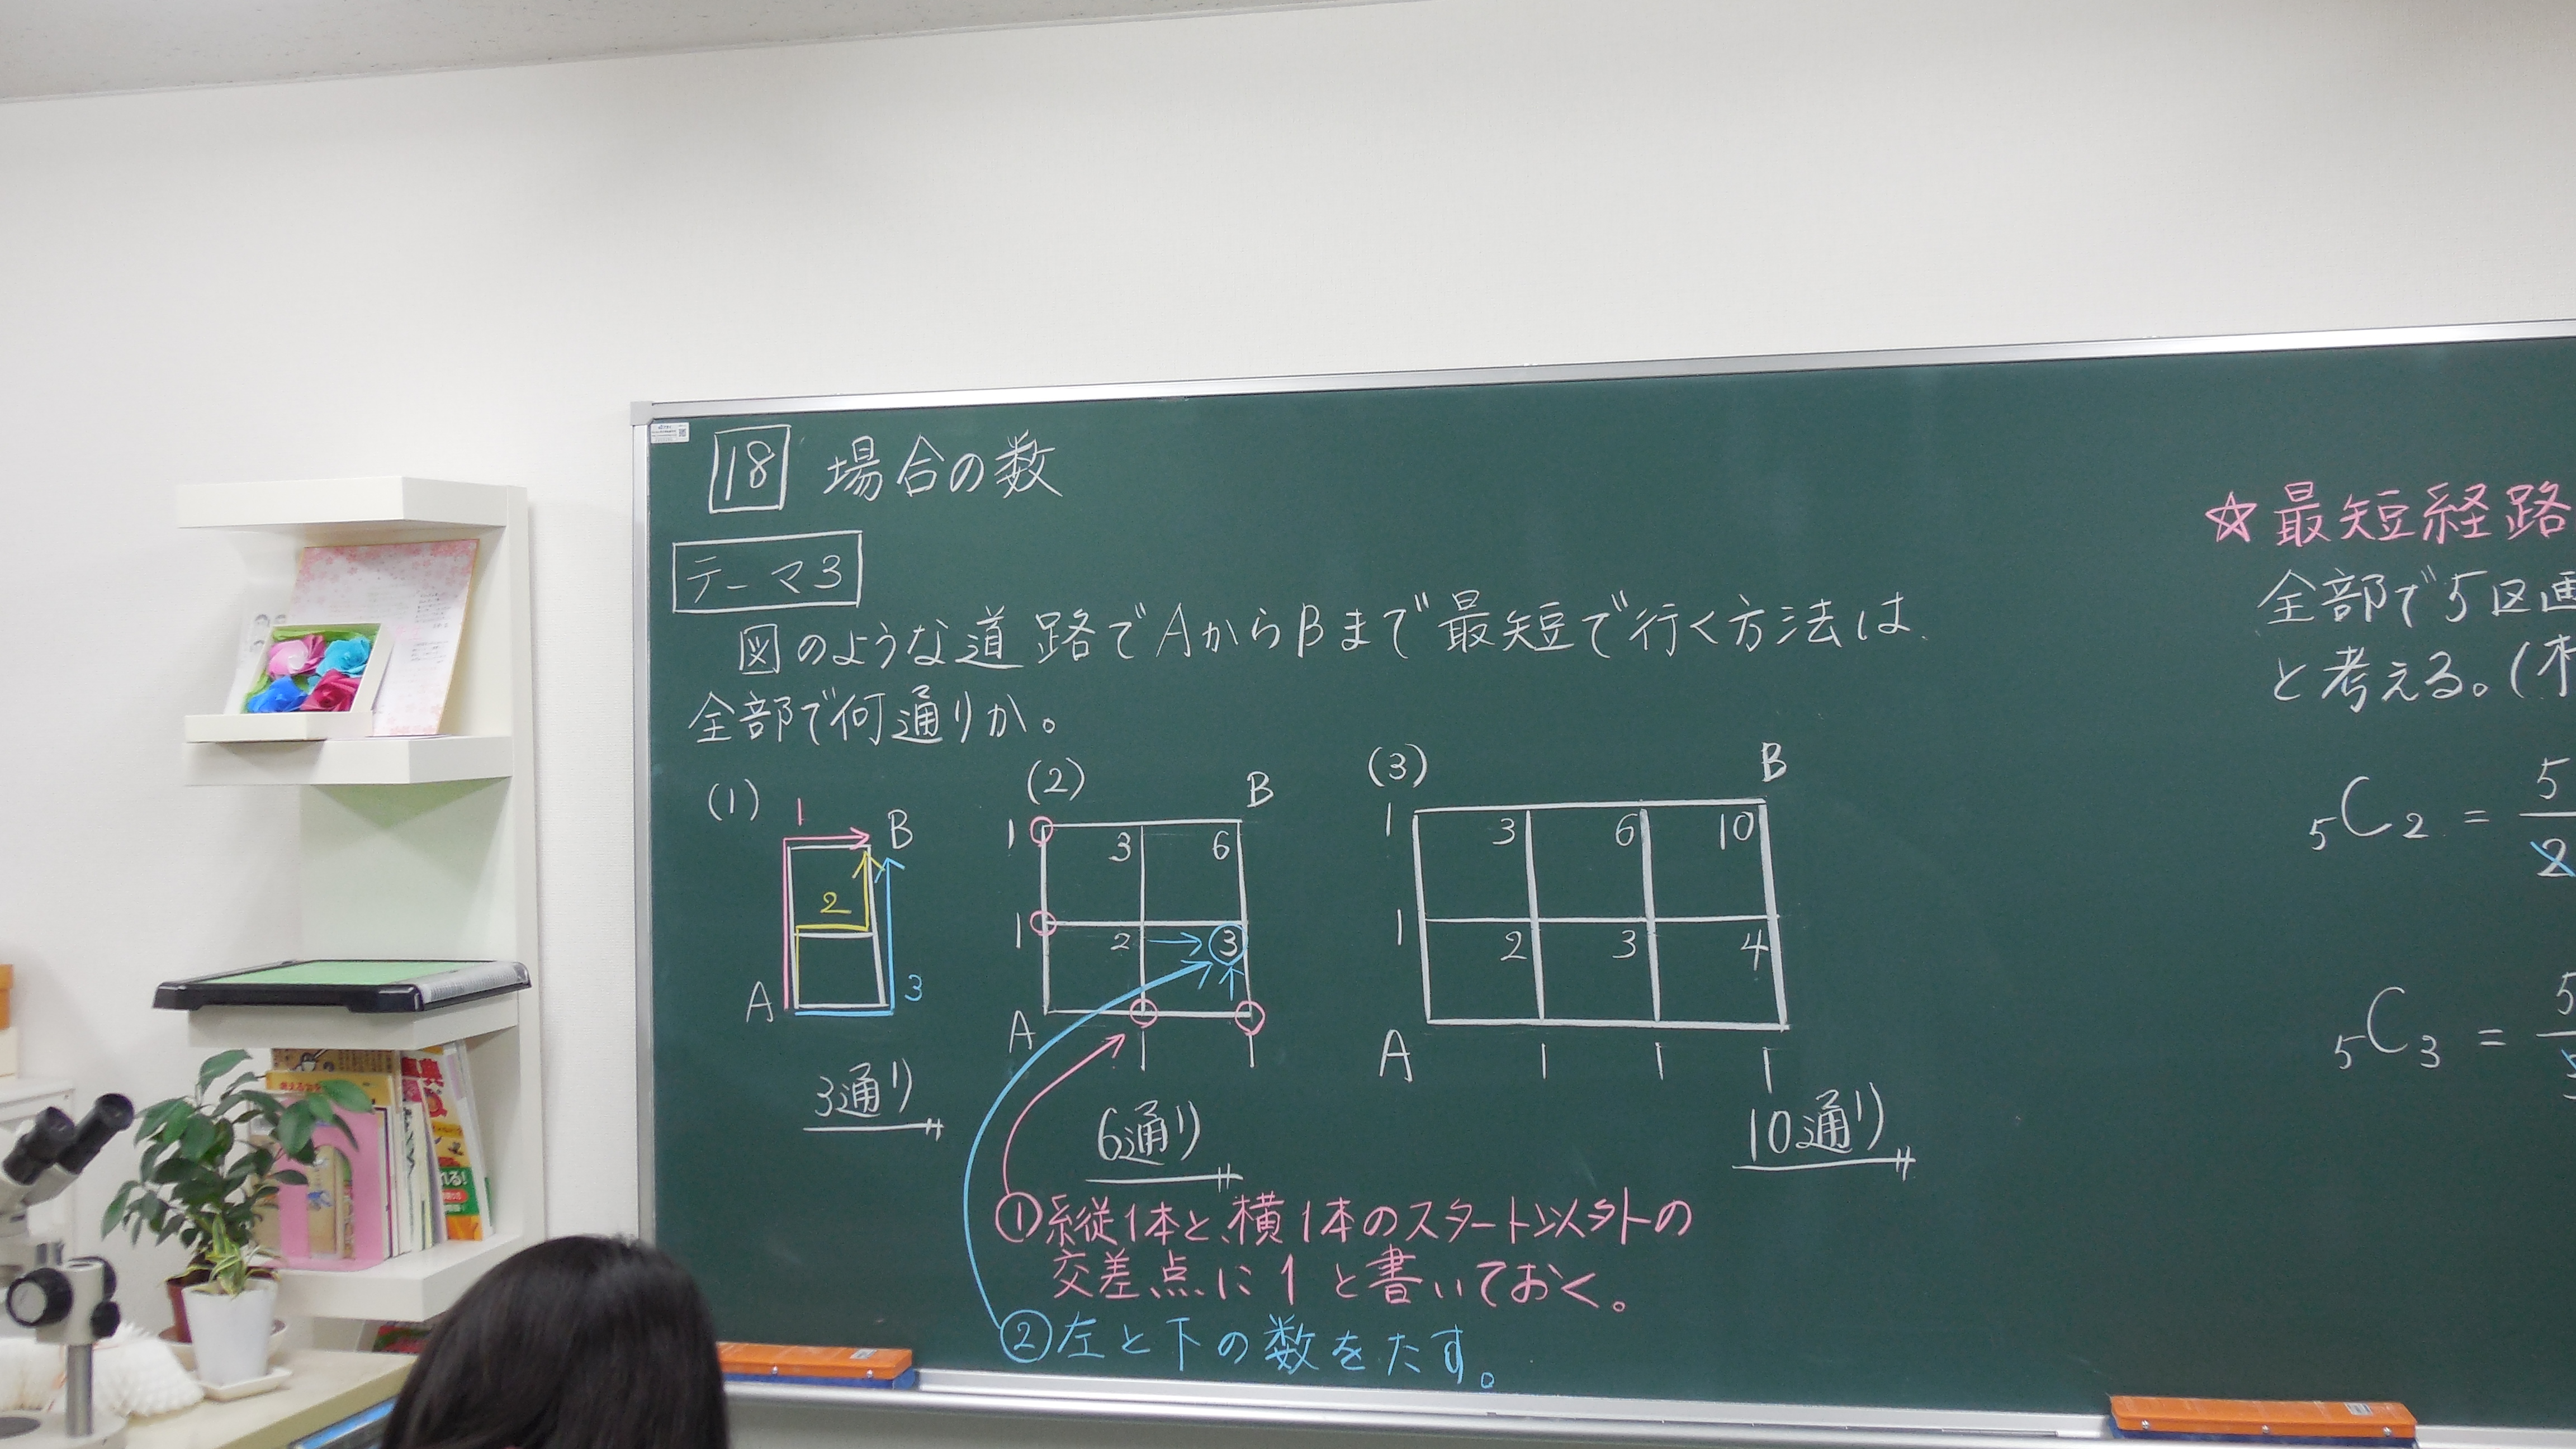 18 場合の数
テーマ3
図のような道路でAからBまで最短で行く方法は
全部で何通りか。
(1)
1
B
2
A
3
3通り
(2)
B
1
3
6
1
2
3
A
1
1
6通り
(3)
B
1
3
6
10
1
2
3
4
A
1
1
1
10通り
①縦1本と、横1本のスタート以外の
交差点に1と書いておく。
②左と下の数をたす。
☆最短経路
全部で5区画
と考える。(
5C2 = 5
2
5C3 = 5